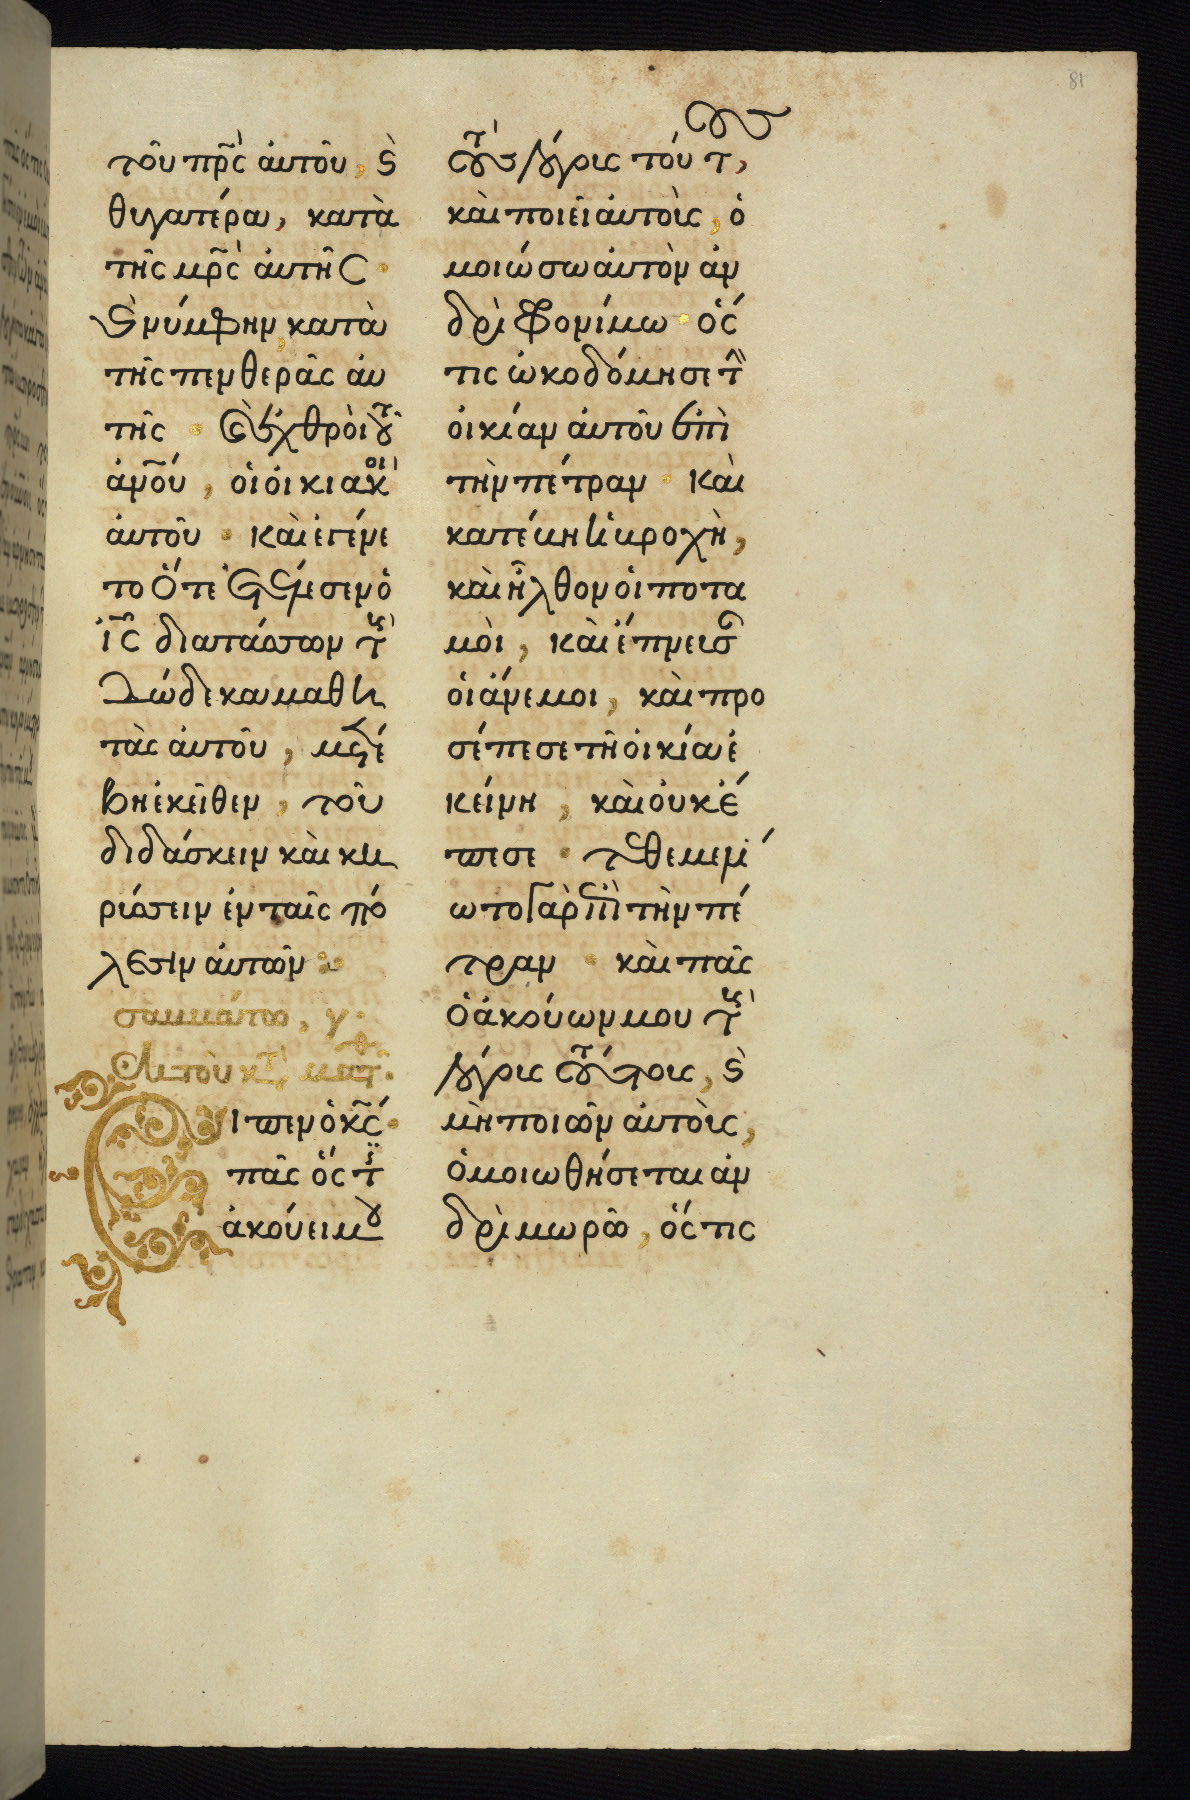 81
τοῦ πρ̅ς ἀυτοῦ, ϗ
θυγατέρα, κατὰ
τῆς μρ̅ς ἀυτῆς ·
ϗ νύμφην, κατὰ
τῆς πενθερᾶς ἀυ
τῆς · ϗ ἐχθροὶ τοῦ
ἀνου̅, ὁι ὀικιακοὶ
ἀυτοῦ · καὶ ἐγένε
το ὅτε ἐτέλεσεν ὁ
ι̅ς̅ διατάσσων τοῖς
δώδεκα μαθη
ταῖς ἀυτοῦ, μετέ
βη ἐκεῖθεν, τοῦ
διδάσκειν καὶ κη
ρύσσειν ἐν ταῖς πό
λεσιν ἀυτῶν :
σαββάτω, γ·
ἐκ τοῦ κτ̅ ματ̅·
Εἶπεν ὁ κς̅ ·
πᾶς ὅς τις
ἀκούει μου
τοὺς λόγους τούτ,
καὶ ποιεῖ ἀυτοὺς, ὁ
μοιώσω ἀυτὸν ἀν
δρὶ φρονίμω · ὅς
τις ὠκοδόμησε τὴν
ὀικίαν ἀυτοῦ ἐπὶ
τὴν πέτραν · καὶ
κατέβη ἡ βροχὴ,
καὶ ἦλθον ὁι ποτα
μοὶ, καὶ ἔπνευσαν
ὁι ἄνεμοι, καὶ προ
σέπεσε τῆ ὀικία ἐ
κείνη, καὶ ὀυκ ἔ
πεσε · τεθεμελί
ωτο γὰρ ἐπὶ τὴν πέ
τραν · καὶ πᾶς
ὁ ἀκούων μου τοὺς
λόγους τούτους, ϗ
μὴ ποιῶν ἀυτοὺς,
ὁμοιωθήσεται ἀν
δρὶ μωρῶ, ὅς τις